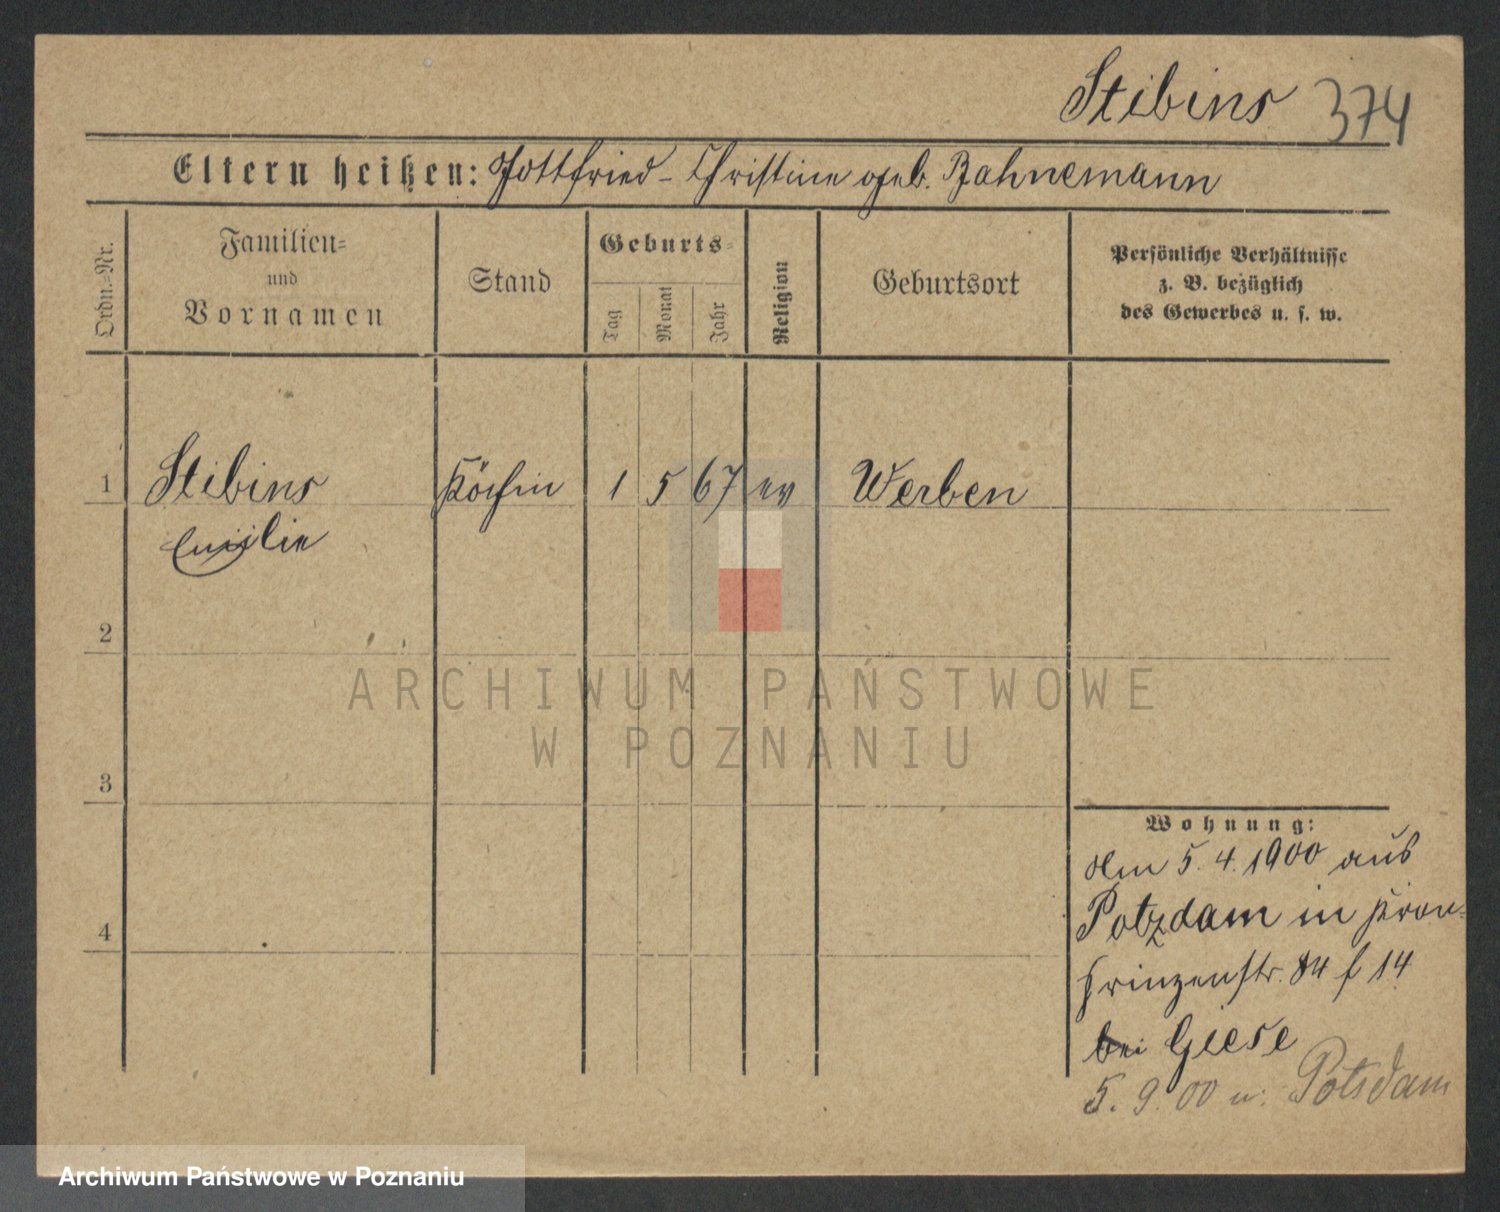 Stibins 374
Eltern heißen: Gottfried - Christine geb. Bahnemann
Ordn.-Nr.
Familien-
und
Vornamen
Stand
Geburts-
Tag
Monat
Jahr
Religion
Geburtsort
Persönliche Verhältnisse
z. B. bezüglich
des Gewerbes u. s. w.
1 Stibins Köchin 1 5 67 ev Werben
Emilie
2
3
4
Wohnung:
Am 5.4.1900 aus
Potzdam in Kron-
prinzenstr. 84 f 14
bei Giese
5. 9. 00 n. Potsdam
ARCHIWUM PAŃSTWOWE
W POZNANIU
Archiwum Państwowe w Poznaniu